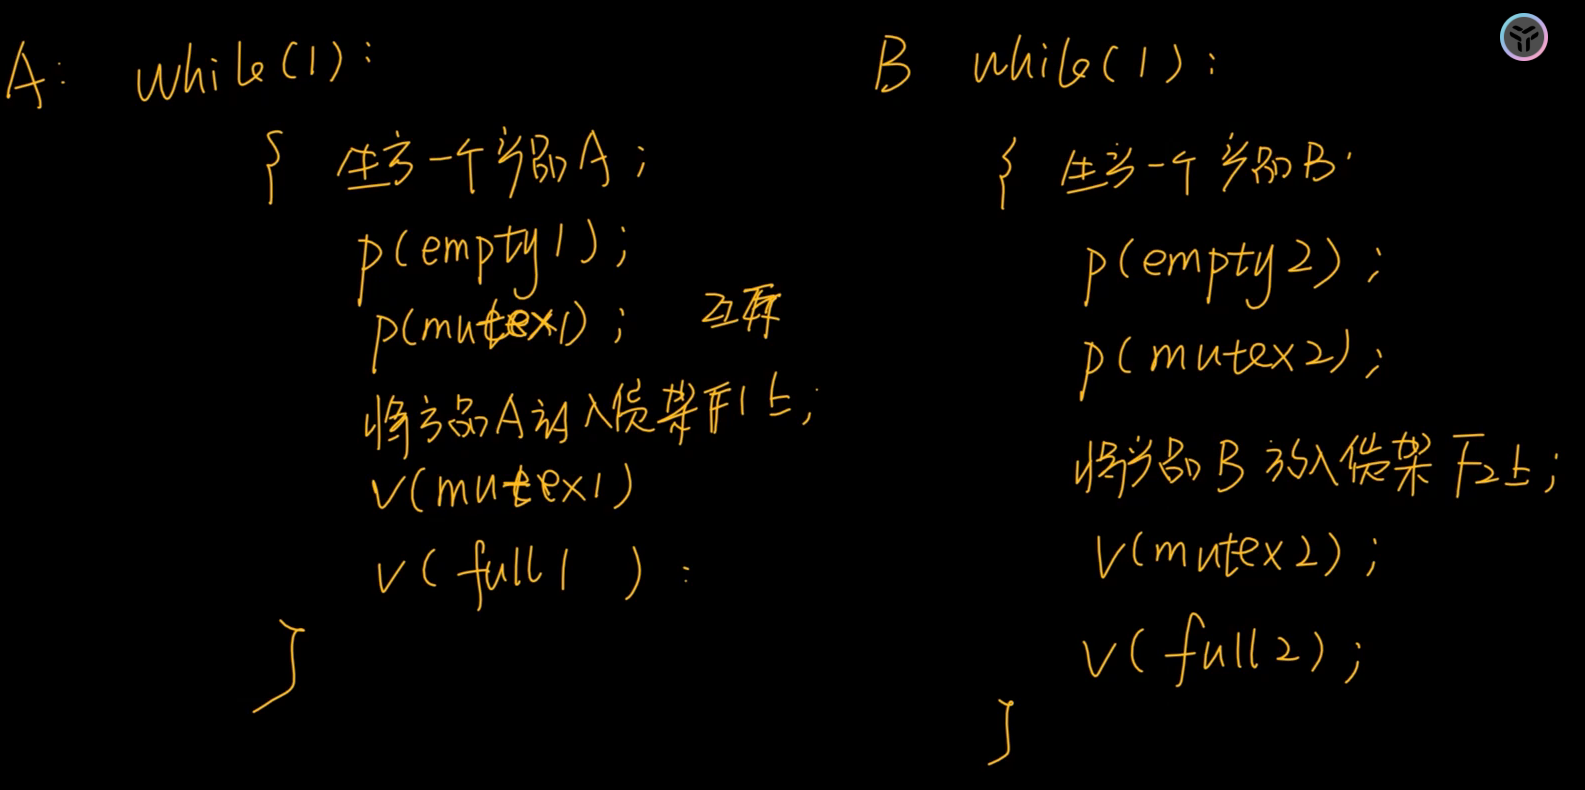 A: while(1):
{ 生产一个产品A;
p(empty1);
p(mutex1); 互斥
将产品A放入货架F1上;
v(mutex1)
v(full1 ):
}
B while(1):
{ 生产一个产品B.
p(empty2);
p(mutex2);
将产品B放入货架F2上;
v(mutex2);
v(full2);
}